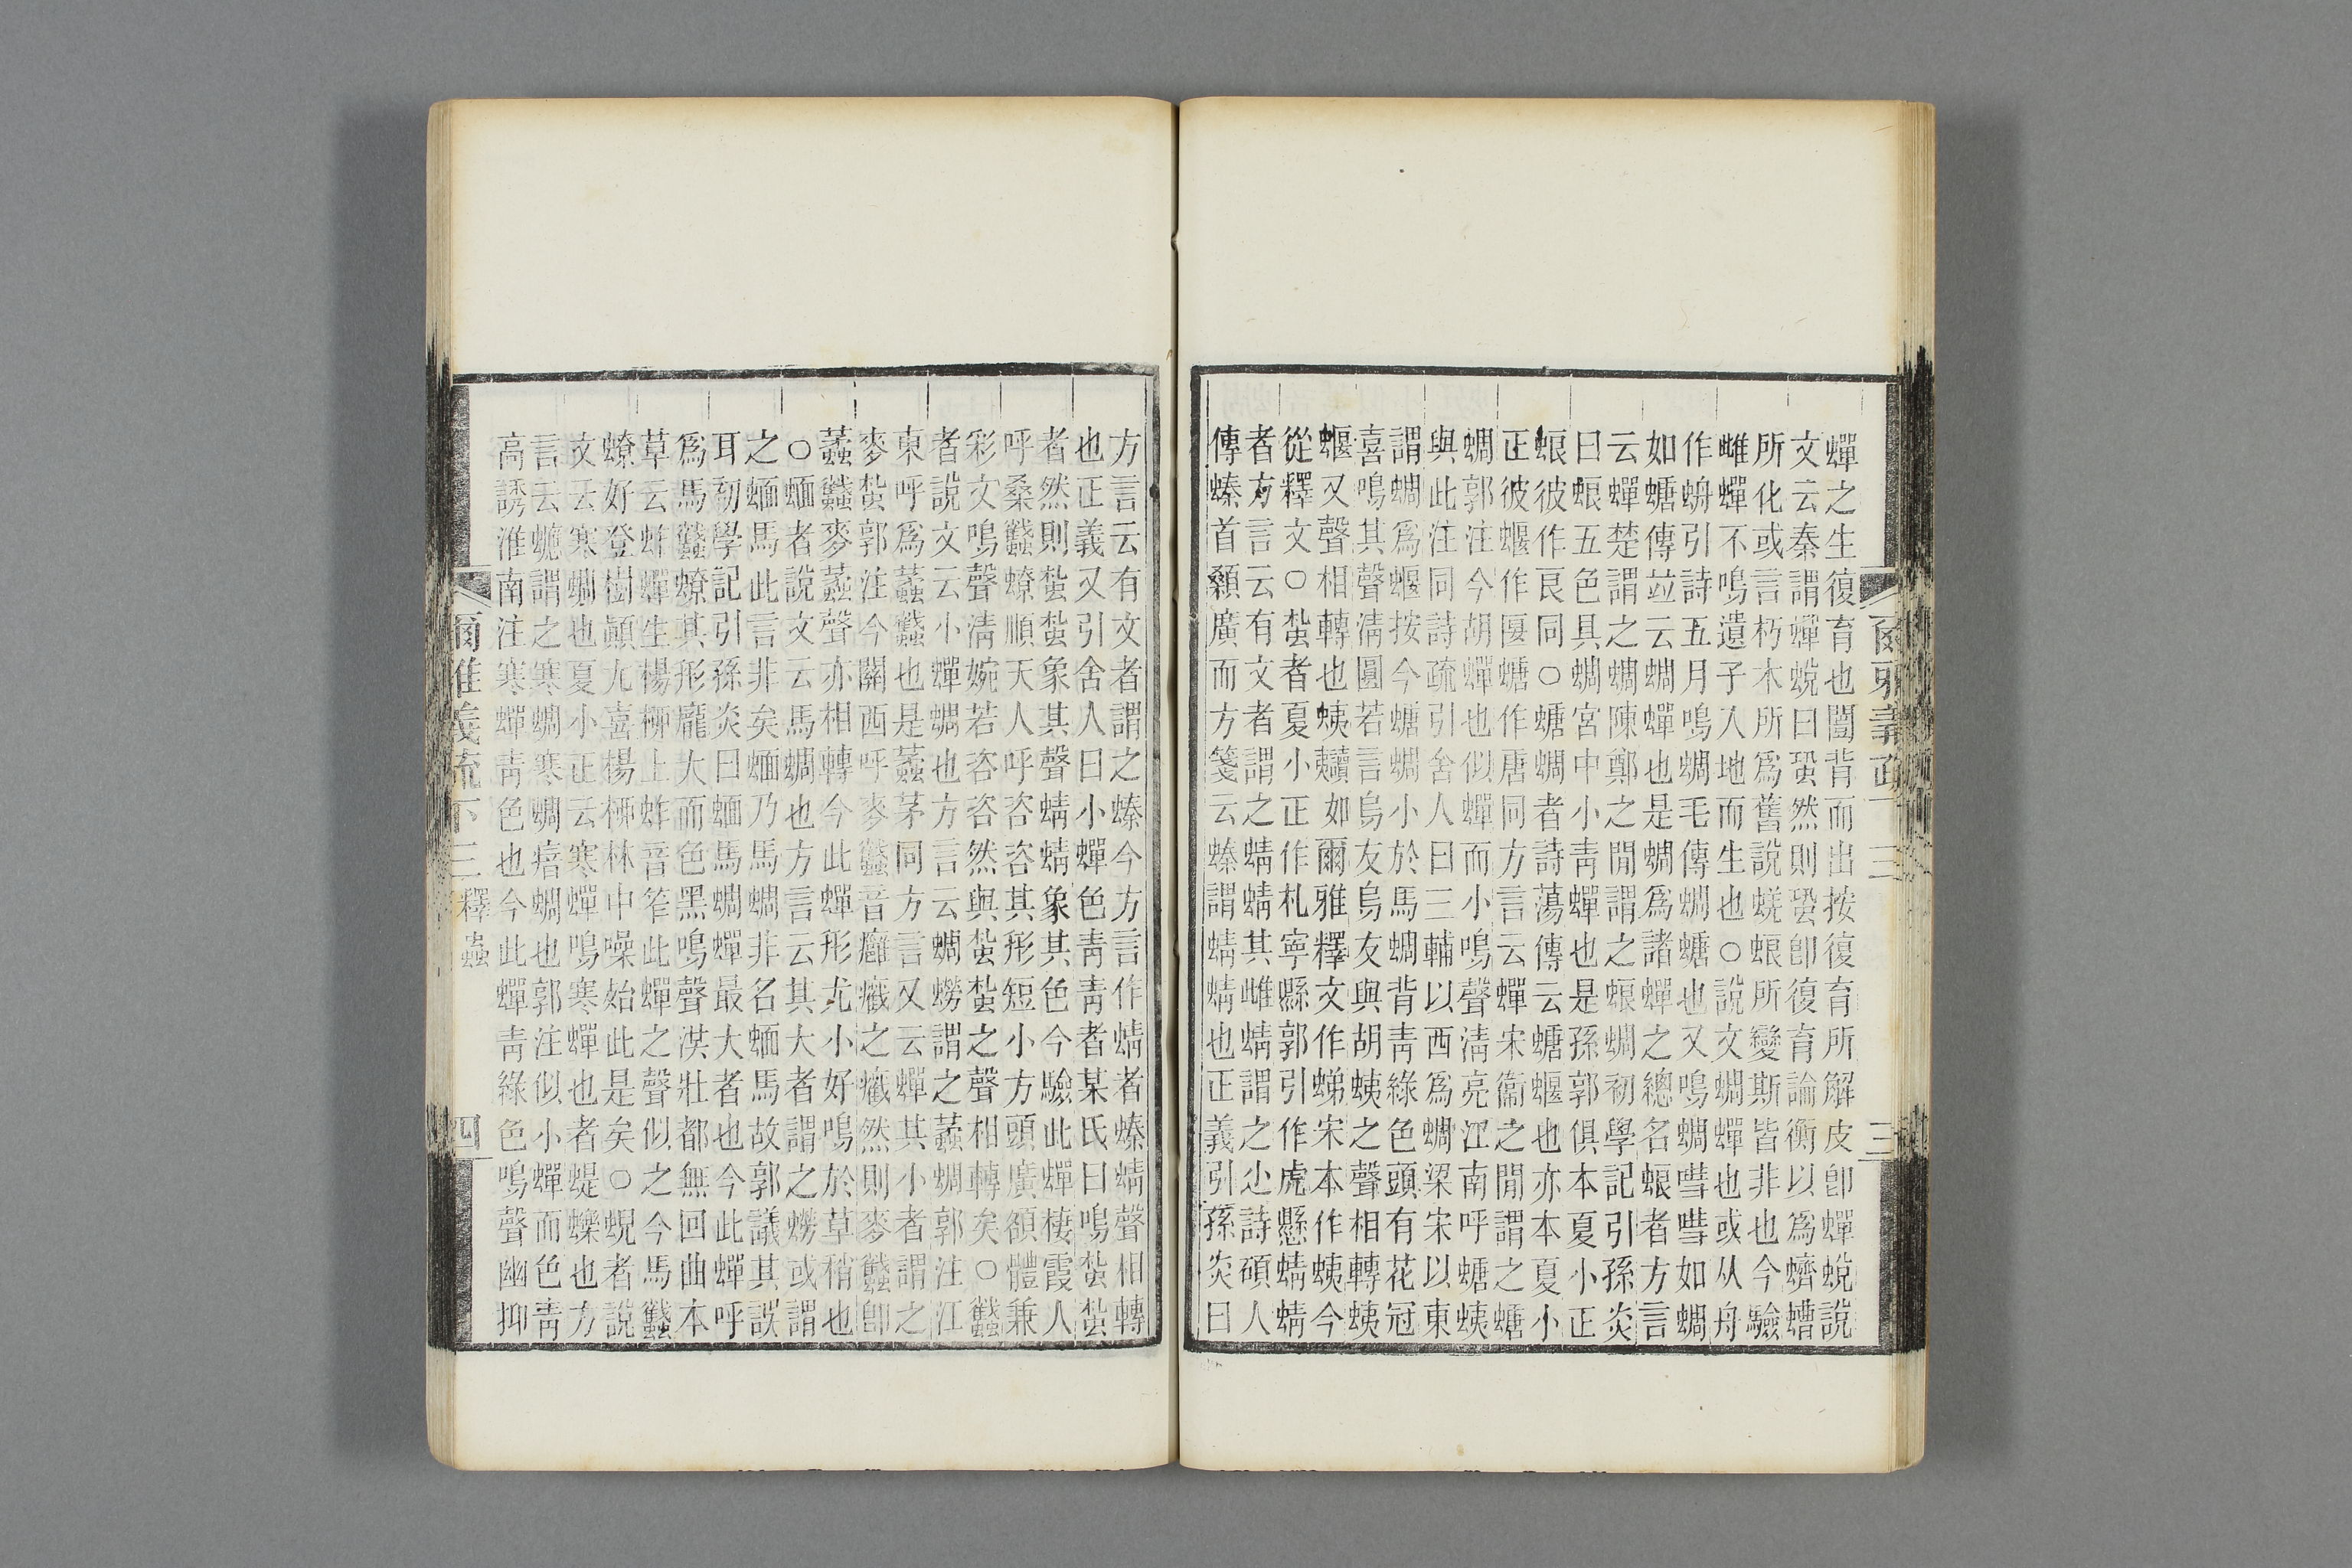 蟬之生復育也闓背而出按復育所解皮卽蟬蛻說
文云秦謂蟬蛻曰蛩然則蛩卽復育論衡以爲蠐螬
所化或言朽木所爲舊說蜣蜋所變斯皆非也今驗
雌蟬不鳴遺子入地而生也○說文蜩蟬也或从舟
作蛁引詩五月鳴蜩毛傳蜩螗也又鳴蜩嘒嘒如蜩
如螗傳竝云蜩蟬也是蜩爲諸蟬之總名蜋者方言
云蟬楚謂之蜩陳鄭之閒謂之蜋蜩初學記引孫炎
曰蜋五色具蜩宮中小靑蟬也是孫郭俱本夏小正
蜋彼作良同○螗蜩者詩蕩傳云螗蝘也亦本夏小
正彼蝘作匽螗作唐同方言云蟬宋衞之閒謂之螗
蜩郭注今胡蟬也似蟬而小鳴聲淸亮江南呼螗蛦
與此注同詩疏引舍人曰三輔以西爲蜩梁宋以東
謂蜩爲蝘按今螗蜩小於馬蜩背靑綠色頭有花冠
喜鳴其聲淸圓若言烏友烏友與胡蛦之聲相轉蛦
蝘又聲相轉也蛦 如爾雅釋文作蟬宋本作蛦今
從釋文○蚻者夏小正作札寧縣郭引作虎懸蜻蜻
者方言云有文者謂之蜻蜻其雌蜻謂之尐詩碩人
傳螓首顙廣而方箋云螓謂蜻蜻也正義引孫炎曰
爾雅義疏 三 三
方言云有文者謂之螓今方言作蜻者螓蜻聲相轉
也正義又引舍人曰小蟬色靑靑者某氏曰鳴蚻蚻
者然則蚻蚻象其聲蜻蜻象其色今驗此蟬棲霞人
呼桑蠽蟟順天人呼咨咨其形短小方頭廣額體兼
彩文鳴聲淸婉若咨咨然與蚻蚻之聲相轉矣○蠽
者說文云小蟬蜩也方言云蜩蟧謂之蠽蜩郭注江
東呼爲蠽蠽也是蠽茅同方言又云蟬其小者謂之
麥蚻郭注今關西呼麥蠽音癰癤之癤然則麥蠽卽
蠽蠽麥蠽聲亦相轉今此蟬形尤小好鳴於草稍也
○蝒者說文云馬蜩也方言云其大者謂之蟧或謂
之蝒馬此言非矣蝒乃馬蜩非名蝒馬故郭議其誤
耳初學記引孫炎曰蝒馬蜩蟬最大者也今此蟬呼
爲馬蠽蟟其形龐大而色黑鳴聲淇壯都無回曲本
草云蚱蟬生楊柳上蚱音笮此蟬之聲似之今馬蠽
蟟好登樹顚尤喜楊柳林中噪始此是矣○蜺者說
文云寒蜩也夏小正云寒蟬鳴寒蟬也者蝭蠑也方
言云蟪謂之寒蜩寒蜩瘖蜩也郭注似小蟬而色靑
高誘淮南注寒蟬靑色也今此蟬靑綠色鳴聲幽抑
爾雅義疏下三 釋蟲 四